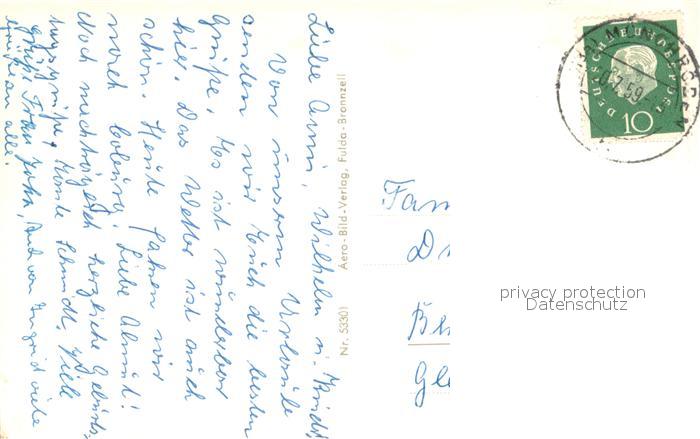 Liebe Anni, Wilhelm u. Kind!
Von unserm Urlaub
senden wir Euch die besten
Grüße. Es ist wunderbar
hier. Das Wetter ist auch
schön. Heute fahren wir
nach
Liebe Almut!
Noch nachträglich herzliche Geburts-
tagsgrüße, Viele
grüße Frau und von Ingrid viele
Grüße an alle.
Nr. 53301 Aero-Bild-Verlag, Fulda-Bronnzell
DEUTSCHE BUNDESPOST
10
59
Fam
D
Be
Gl
privacy protection
Datenschutz